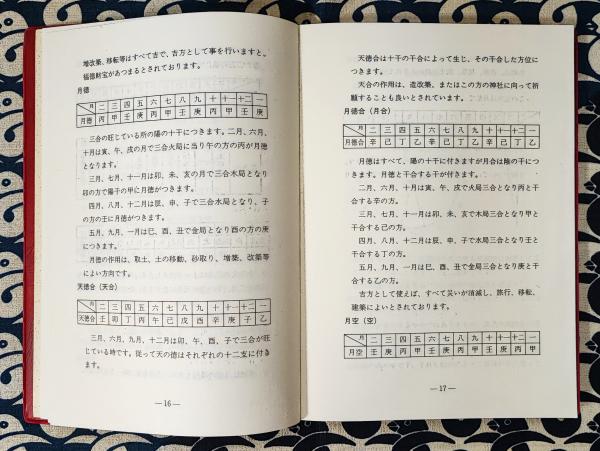 増改築、移転等はすべて吉で、吉方として事を行いますと、
福徳財宝があつまるとされております。
月徳
月 二 三 四 五 六 七 八 九 十 十一 十二 一
月徳 丙 甲 壬 庚 丙 甲 壬 庚 丙 甲 壬 庚
三合の旺じている所の陽の十干につきます。二月、六月、
十月は寅、午、戌の月で三合火局に当り午の方の丙が月徳
となります。
三月、七月、十一月は卯、未、亥の月で三合木局となり
卯の方で陽干の甲に月徳がつきます。
四月、八月、十二月は辰、申、子で三合水局となり、子
の方の壬に月徳がつきます。
五月、九月、一月は巳、酉、丑で金局となり酉の方の庚
につきます。
月徳の作用は、取土、土の移動、砂取り、増築、改築等
によい方向です。
天徳合（天合）
月 二 三 四 五 六 七 八 九 十 十一 十二 一
天徳合 壬 卯 丁 丙 午 己 戌 酉 辛 庚 子 乙
三月、六月、九月、十二月は卯、午、酉、子で三合が旺
じている時です。従って天の徳はそれぞれの十二支に付き
ます。
—16—
天徳合は十干の干合によって生じ、その干合した方位に
つきます。
天合の作用は、造改築、またはこの方の神社に向って祈
願することも良いとされています。
月徳合（月合）
月 二 三 四 五 六 七 八 九 十 十一 十二 一
月徳合 辛 己 丁 乙 辛 己 丁 乙 辛 己 丁 乙
月徳はすべて、陽の十干に付きますが月合は陰の干につ
きます。月徳と干合する干が付きます。
二月、六月、十月は寅、午、戌で火局三合となり丙と干
合する辛の方。
三月、七月、十一月は卯、未、亥で木局三合となり甲と
干合する己の方。
四月、八月、十二月は辰、申、子で水局三合となり壬と
干合する丁の方。
五月、九月、一月は巳、酉、丑で金局三合となり庚と干
合する乙の方。
吉方として使えば、すべて災いが消滅し、旅行、移転、
建築によいとされております。
月空（空）
月 二 三 四 五 六 七 八 九 十 十一 十二 一
月空 壬 庚 丙 甲 壬 庚 丙 甲 壬 庚 丙 甲
—17—